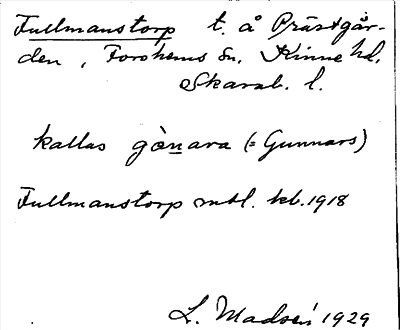 Fullmanstorp t. å Prästgår-
den, Forshems sn, Kinne hd.
Skarab. l.
kallas gònara (= Gunnars)
Fullmanstorp mtl. kb. 1918
L. Madsén 1929